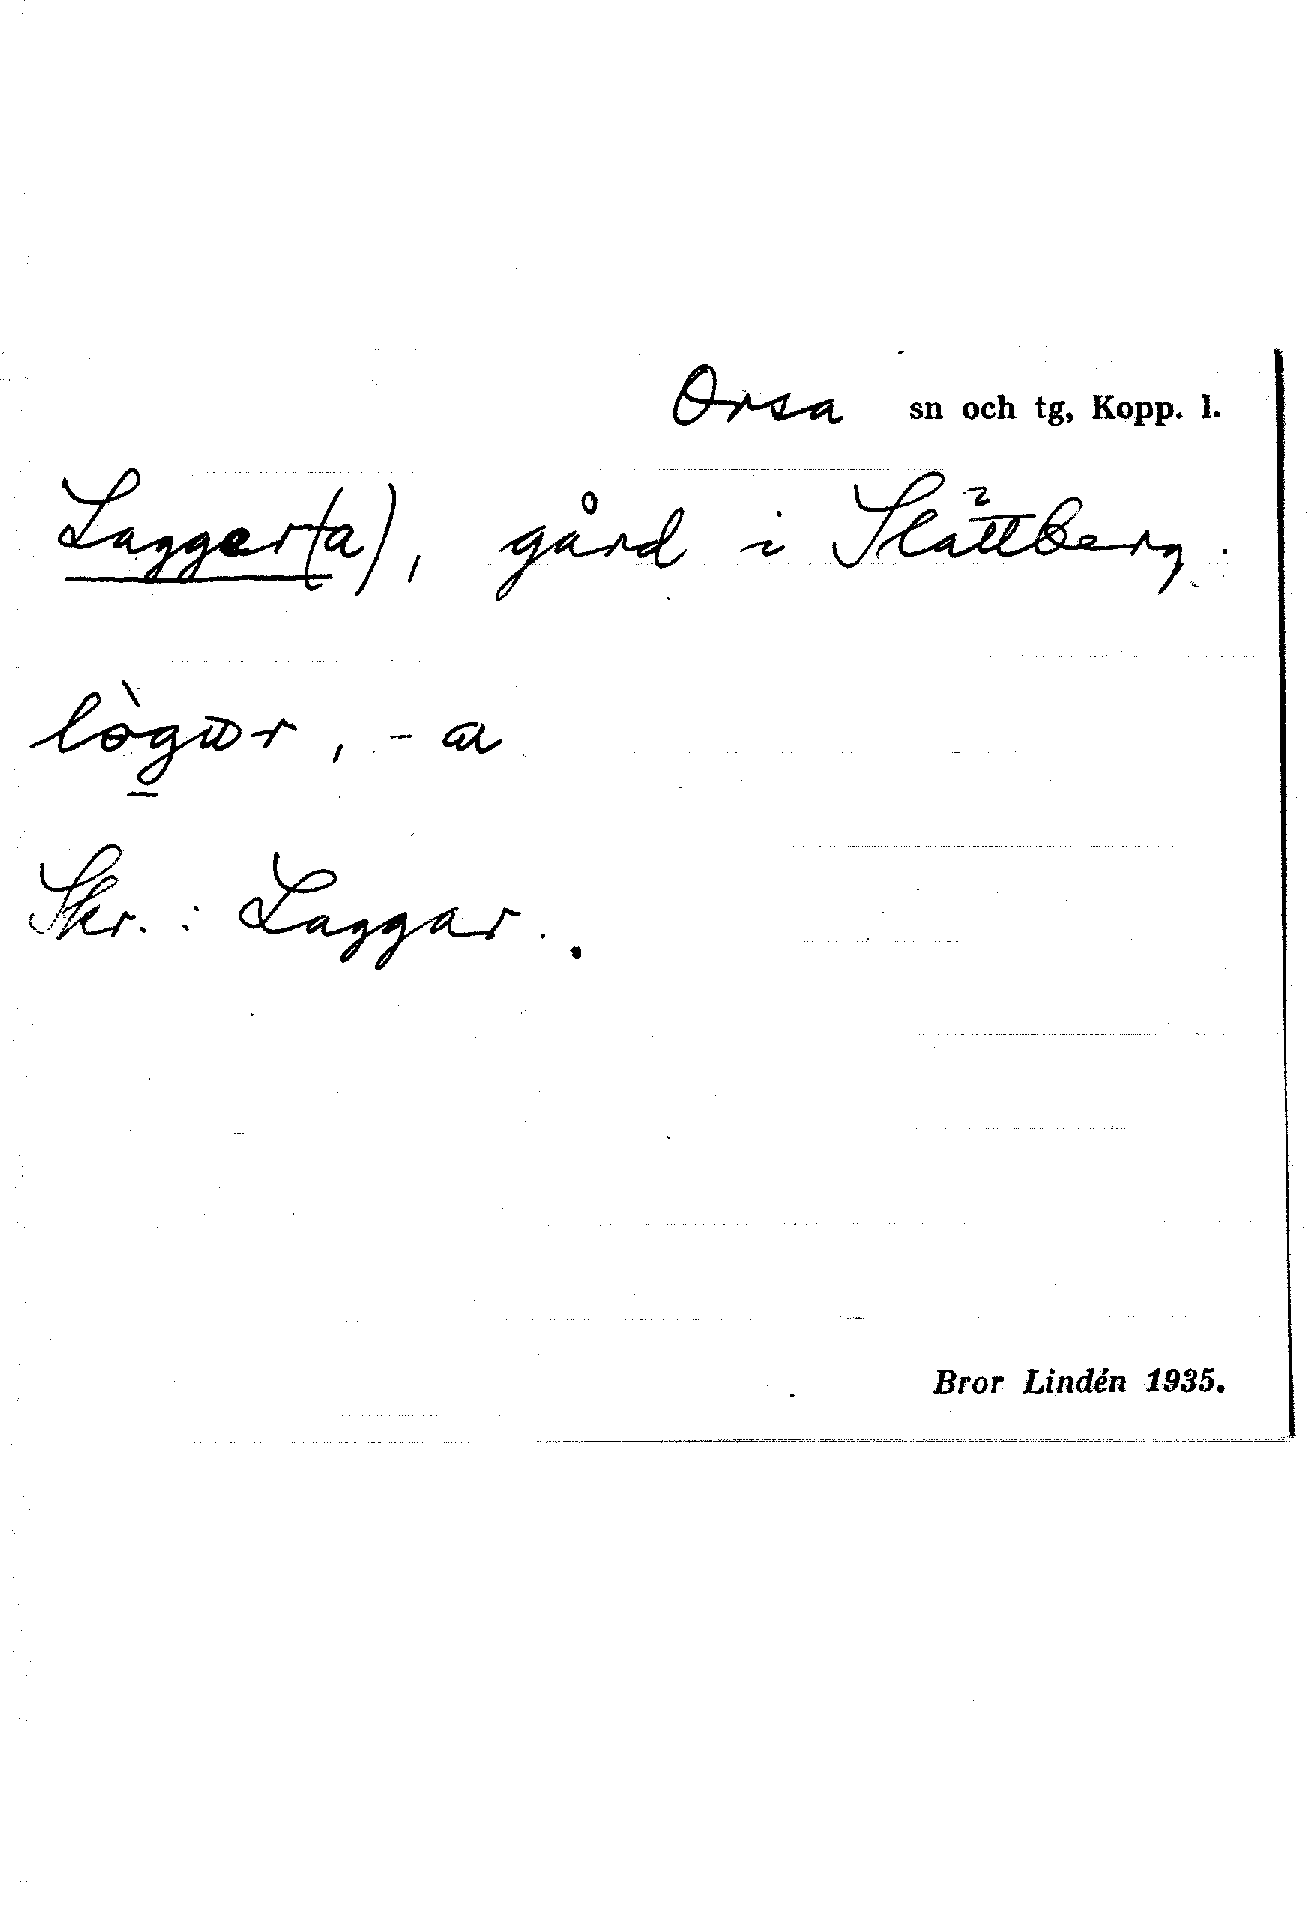 Orsa sn och tg, Kopp. l.
Lagger(a), gård i Slättberg.
Skr.: Laggar.
Bror Lindén 1935.